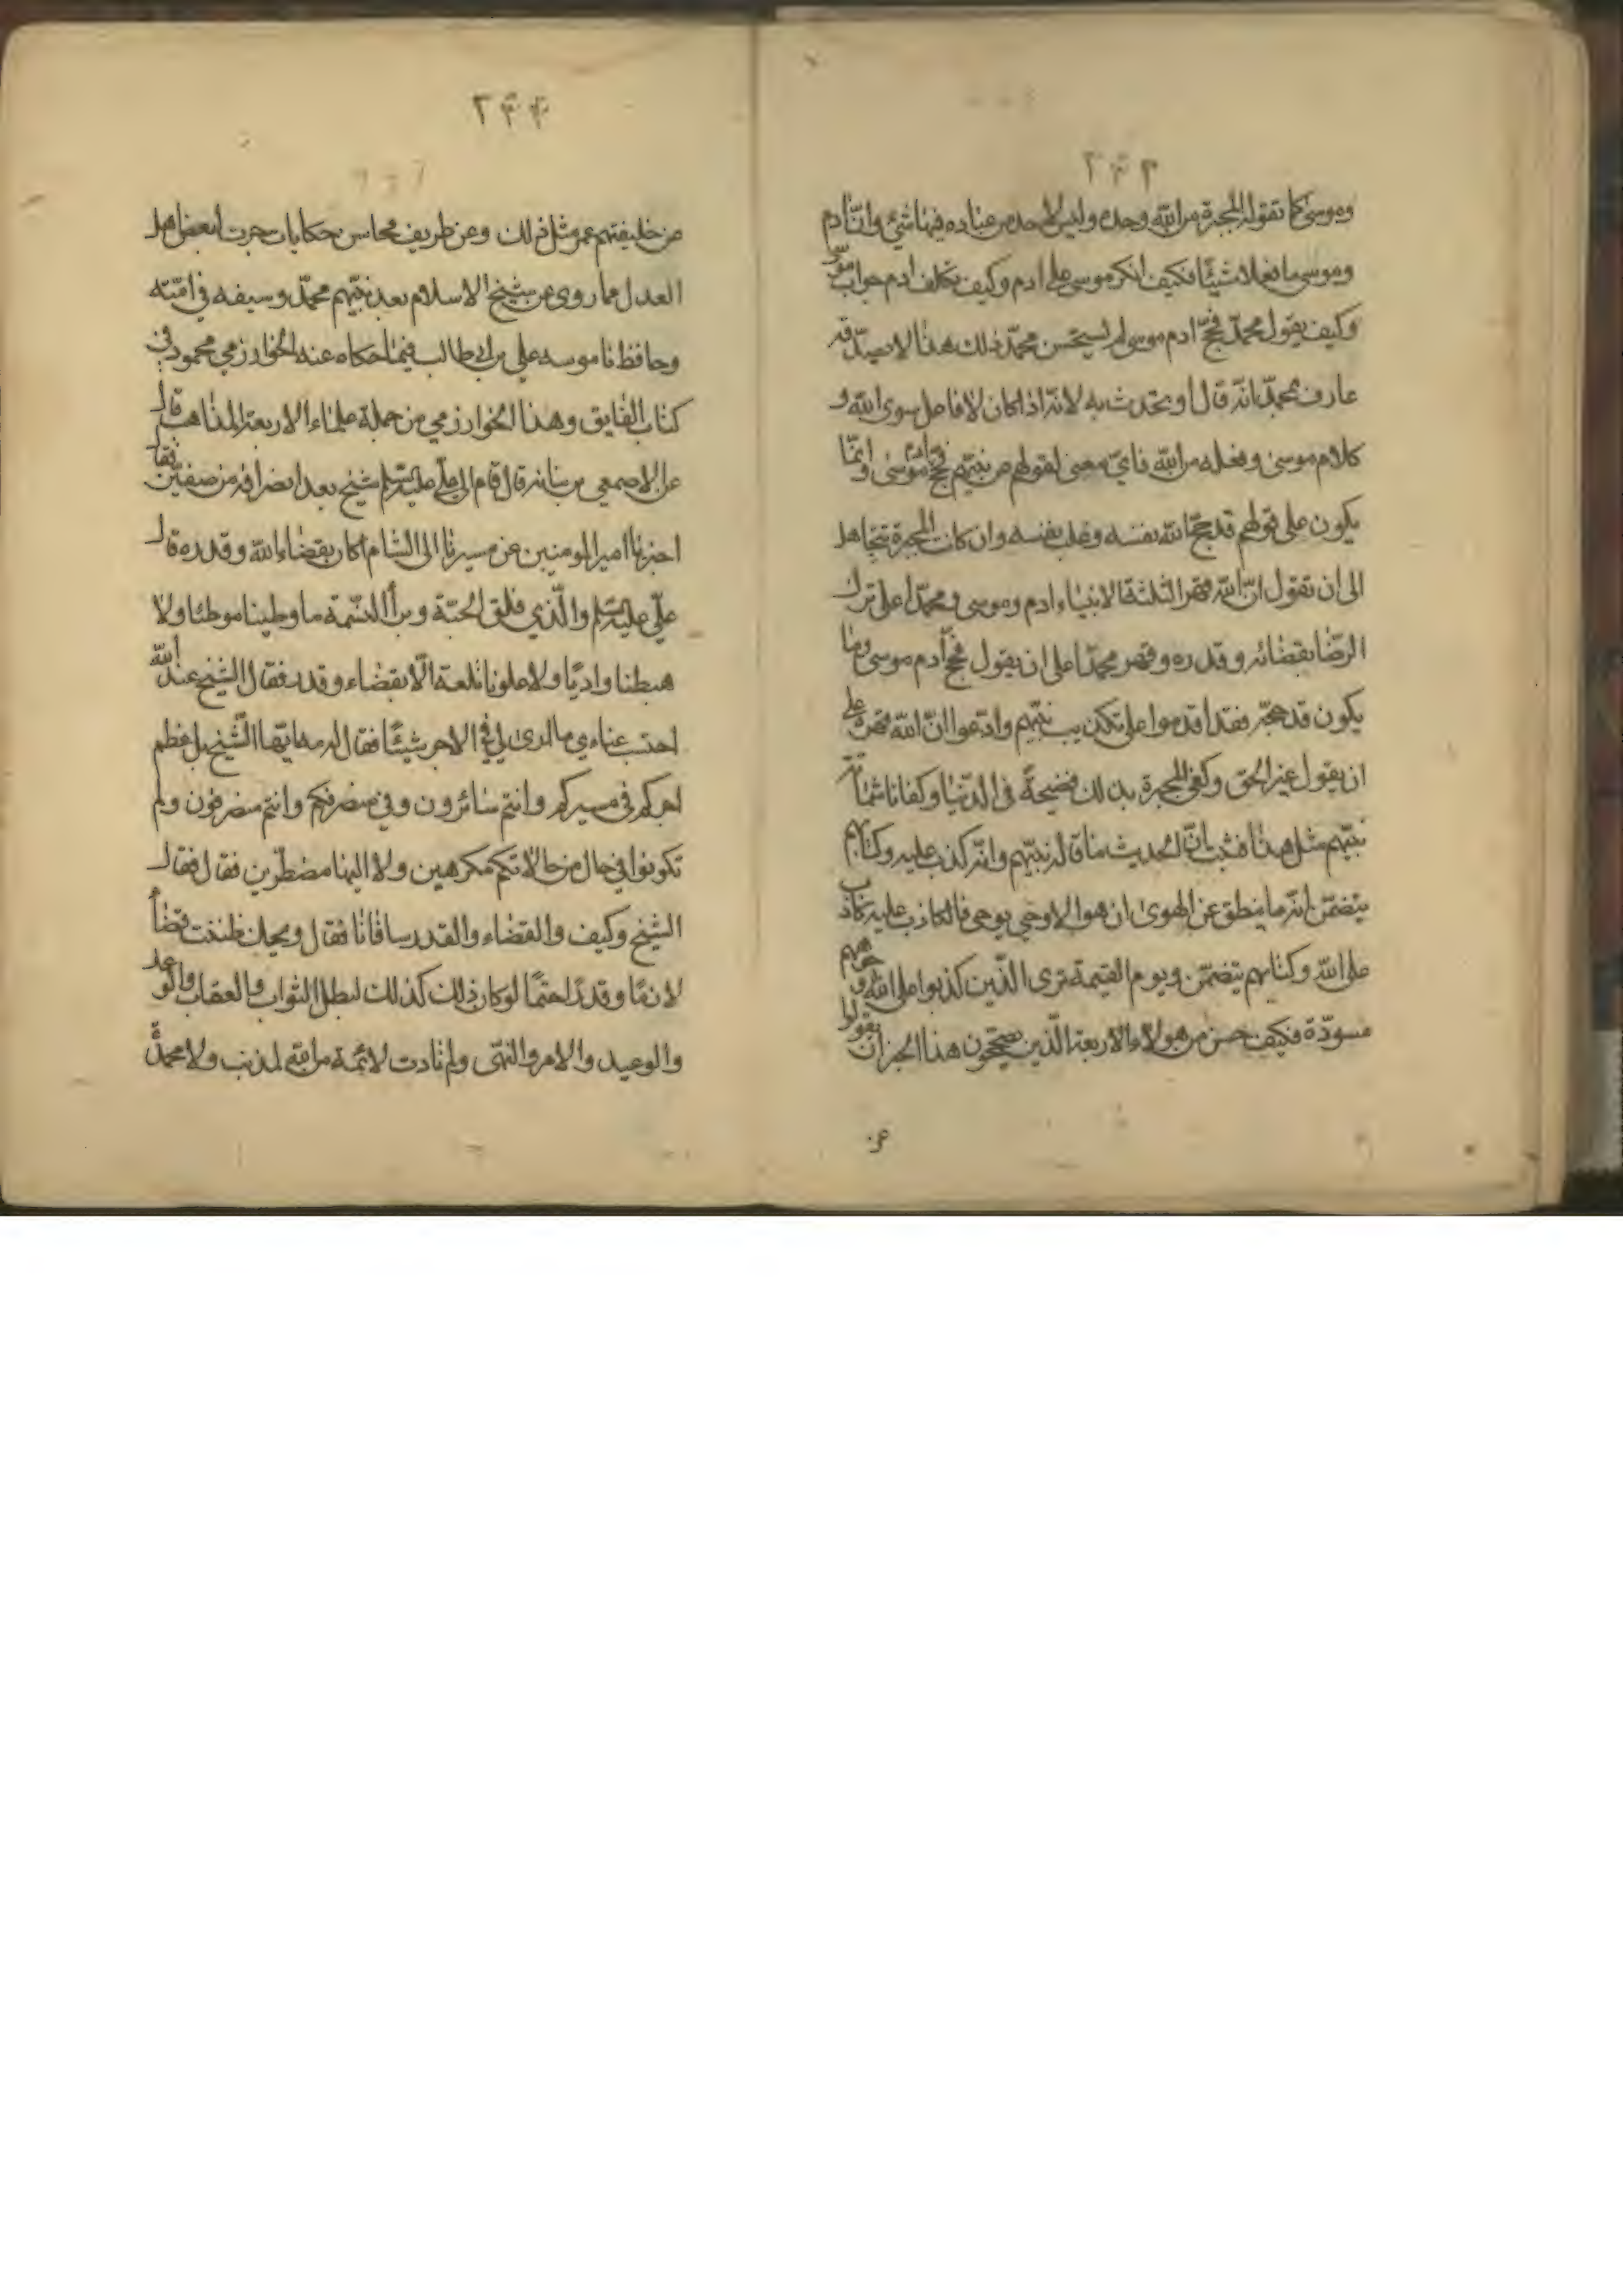 ٢٤٣
وموسى كما تقوله المجبرة من الله وحده وليس لاحد من عباده فيها شئ وان ادم
وموسى ما فعلا شيئا فكيف انكر موسى على ادم وكيف تكلف ادم جواب موسى
وكيف يقول محمد فحج ادم موسى لم يستحسن محمد ذلك هذا لا يصدقه
عارف بمحمد انه قال او يتحدث به لانه اذا كان لا فاعل سوى الله و
كلام موسى وفعله من الله فاي معنى لقولهم عن نبيهم فحج ادم موسى وانما
يكون على قولهم قد حج الله نفسه وغلب نفسه وان كانت المجبرة تتجاهل
الى ان تقول ان الله قهر الثلثة الانبياء ادم وموسى ومحمدا على ترك
الرضا بقضائه وقدره وقهر محمدا على ان يقول فحج آدم موسى وما
يكون قد حجه فقد اقدموا على تكذيب نبيهم وادعوا ان الله قهره على
ان يقول غير الحق وكفى المجبرة بذلك فضيحة في الدنيا وكفانا شماتة
نبيهم مثل هذا فثبت ان الحديث ما قاله نبيهم وانه كذب عليه وكتابهم
يتضمن انه ما ينطق عن الهوى ان هو الا وحي يوحى فالكاذب عليه كاذب
على الله وكتابهم يتضمن ويوم القيمة ترى الذين كذبوا على الله وجوههم
مسودة فكيف حسن من هولاء الاربعة الذين يصححون هذا الخبر ان يقولوا
عن
٢٤٤
عن خليفتهم عمر مثل ذلك وعن طريف محاسن حكايات جرت لبعض اهل
العدل مما روى عن شيخ الاسلام بعد نبيهم محمد وسيفه في امته
وحافظ ناموسه علي بن ابي طالب فيما حكاه عنه الخوارزمي محمود في
كتاب الفايق وهذا الخوارزمي من جملة علماء الاربعة المذاهب قال
عن الاصمعي بن نباته قال قام الى علي عليه السلم شيخ بعد انصرافه من صفين فقال
اخبرنا يا امير المومنين عن مسيرنا الى الشام اكان بقضاء الله وقدره قال
علي عليه السلم والذي فلق الحبة وبرأ النسمة ما وطينا موطئا ولا
هبطنا واديا ولا علونا تلعة الا بقضاء وقدر فقال الشيخ عند الله
احتسب عناءي ما ارى لي في الاجر شيئا فقال له مه ايها الشيخ بل عظم
اجركم في مسيركم وانتم سائرون وفي منصرفكم وانتم منصرفون ولم
تكونوا في حال من حالاتكم مكرهين ولا اليها مضطرين فقال فقال
الشيخ وكيف والقضاء والقدر ساقانا فقال ويحك ظننت قضاأ
لازما وقدرا حتما لو كان ذلك كذلك لبطل الثواب والعقاب والوعد
والوعيد والامر والنهى ولم تات لائمة من الله لمذنب ولا محمدة